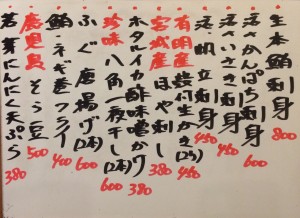 生本鮪刺身 800
活さかんぱち刺身 600
活いさき刺身 450
活・明立刺 450
有明産幾何生かき(2ケ) 450
宮城産ほや刺し 380
ホタルイカ酢味噌かけ 380
珍味八角一夜干し(2本) 600
ふぐ唐揚げ(2本) 600
鮪・ネギ巻フライ 400
鹿児島そら豆 500
若芽にんにく天ぷら 380